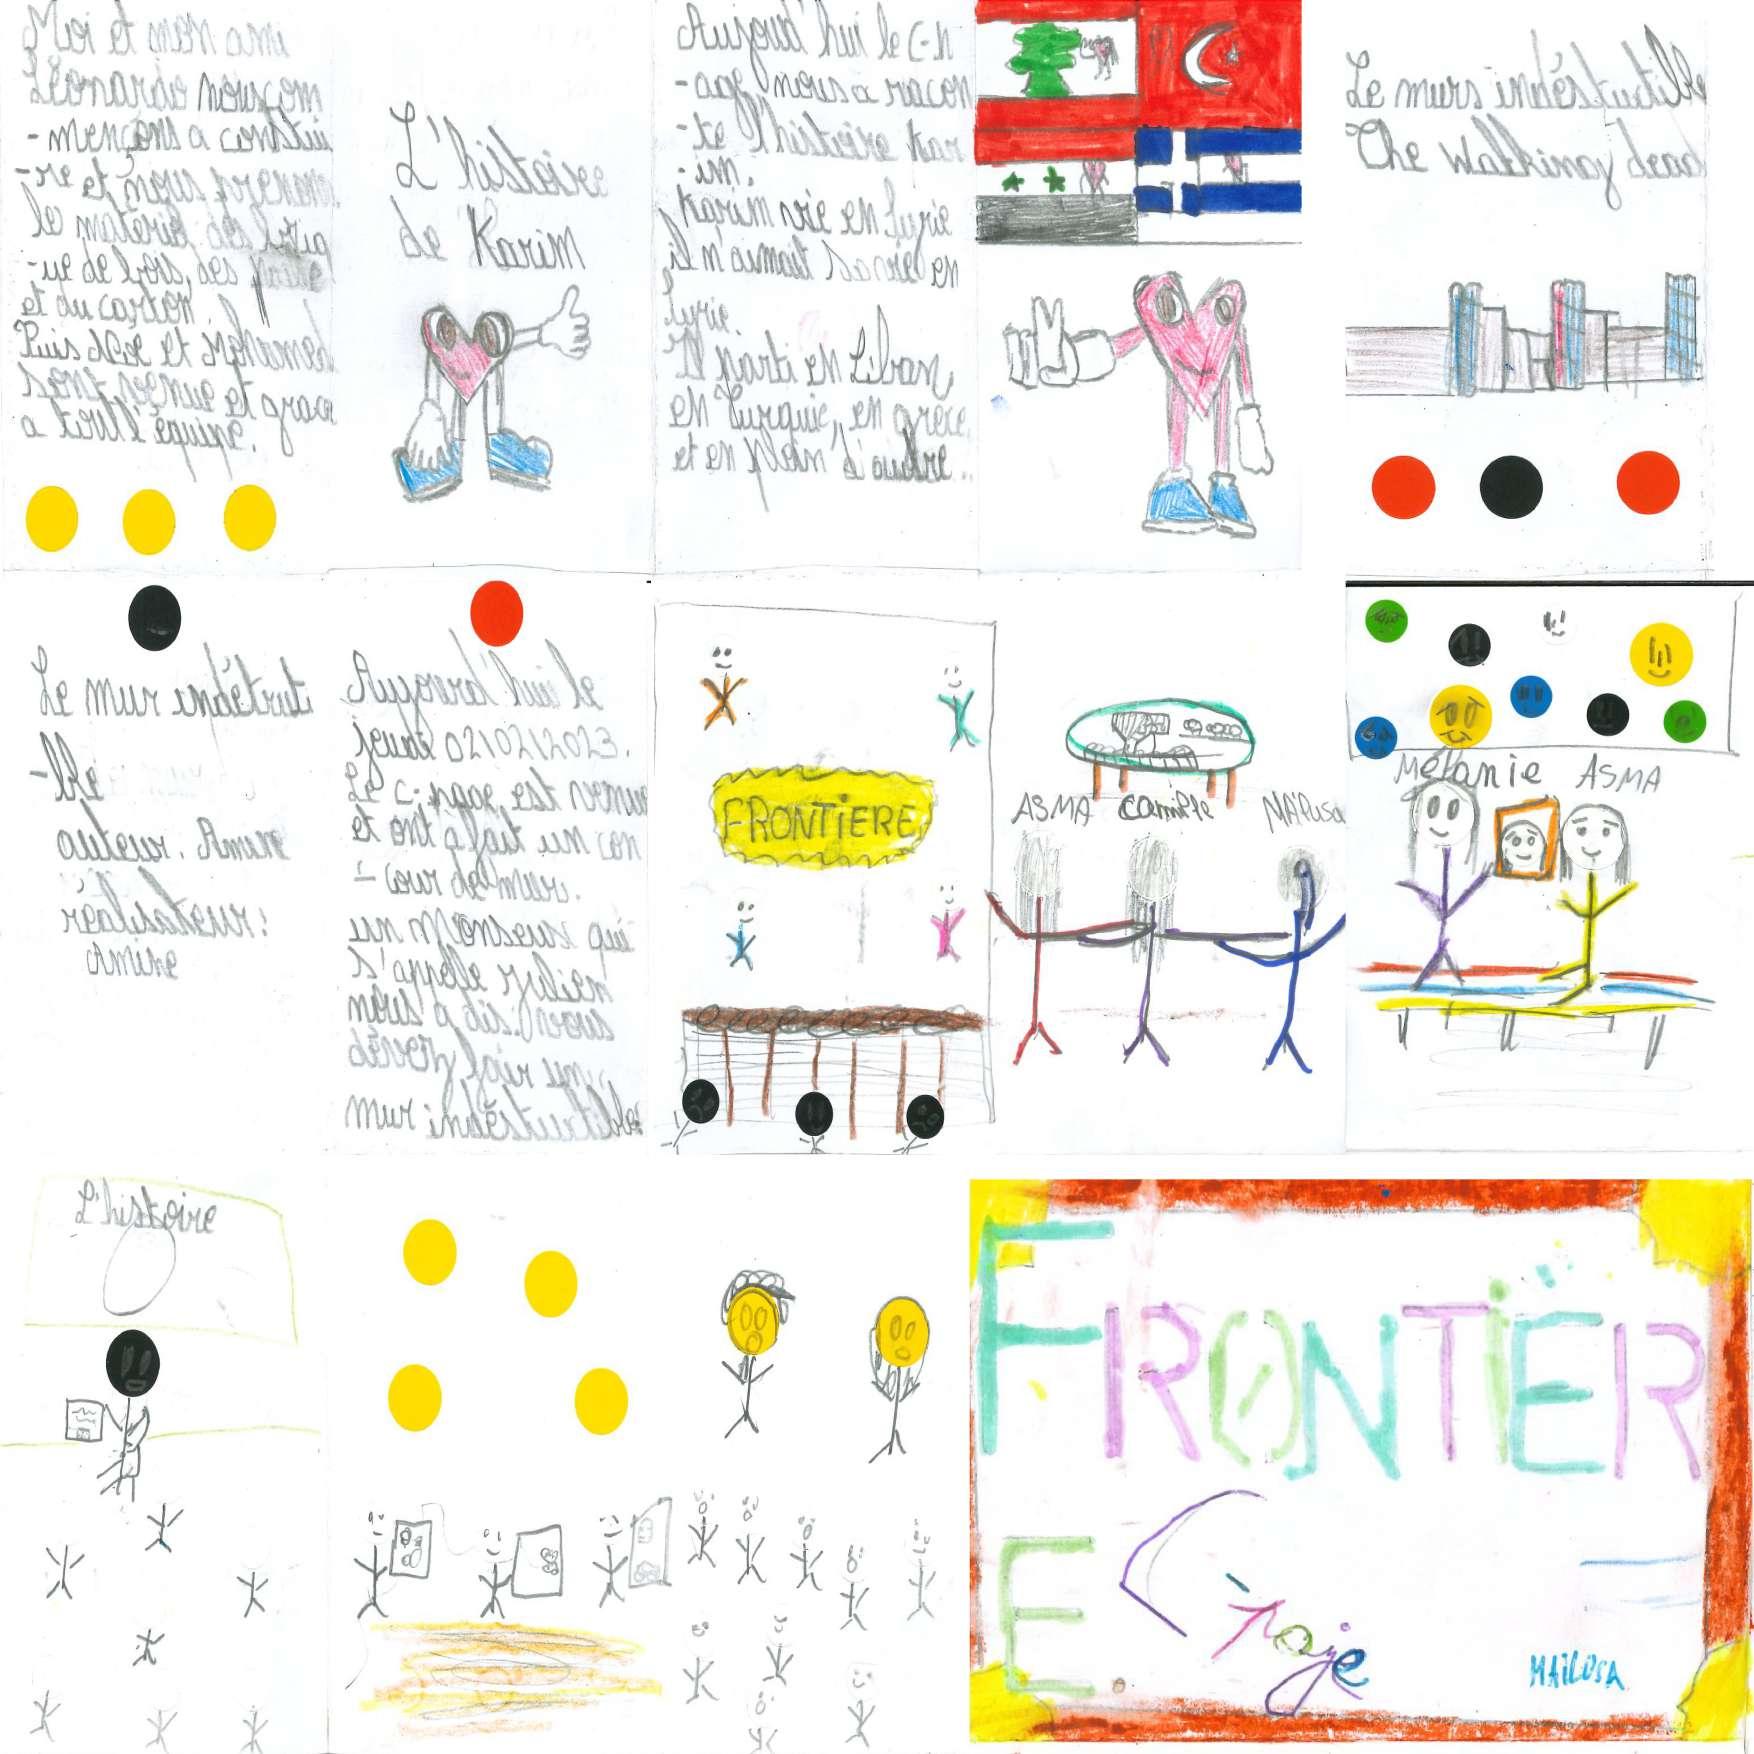 Moi et mon ami
Léonardo nouscom
-mençons a constui
-re et nous prenons
le matériel des briq
-ue de bois, des
et du carton.
Puis Noé et Mohamed
sont venue et grace
a tout l'équipe.
L'histoire
de Karim
Aujoud'hui le C-n
-age nous a racon
-te l'histoire Kar
-im.
Karim vie en Syrie
il n'aimait sa vie en
Syrie.
Il parti en Liban,
en Turquie, en grece,
et en plein d'autre...
Le murs indéstuctilbe
The Walking dead
Le mur indétruti
-ble
auteur. Amine
réalisateur:
Amine
Aujourd'hui le
jeudi 02/02/2023.
Le c-nage est venue
et ont a fait un con
-cour de mur.
un Monsieur qui
s'appelle
nous a dis. vous
devez fair un
mur indéstuctilbe
FRONTiERE
ASMA Camille MAiLusa
Mélanie ASMA
L'histoire
FRONTiER
E.
C-naje
MAiLUSA